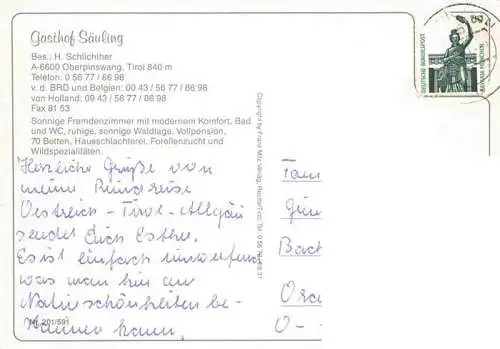 Gasthof Säuling
Bes.: H. Schlichther
A-6600 Oberpinswang, Tirol 840 m
Telefon: 0 56 77 / 86 98
v. d. BRD und Belgien: 00 43 / 56 77 / 86 98
von Holland: 09 43 / 56 77 / 86 98
Fax 81 53
Sonnige Fremdenzimmer mit modernem Komfort, Bad
und WC, ruhige, sonnige Waldlage. Vollpension,
70 Betten, Hausschlachterei. Forellenzucht und
Wildspezialitäten.
Herzliche Grüße von
meiner Rundreise
Oestreich - Tirol - Allgäu
sendet Euch Esther.
Es ist einfach
was man hier an
Naturschönheiten be-
kommen kann.
Nr. 201/591
Copyright by Franz Milz Verlag, Reutte/Tirol, Tel. 0 56
DEUTSCHE BUNDESPOST
BAVARIA MÜNCHEN